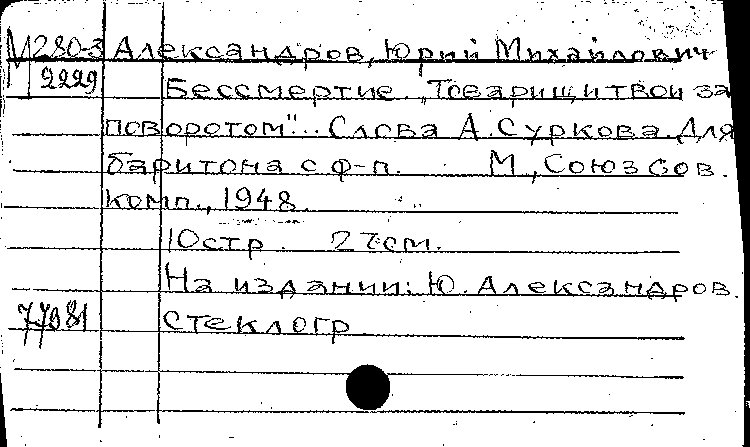 М280-3 Александров, Юрий Михайлович
2229 Бессмертие. „Товарищи твои за
поворотом". Слова А. Суркова. Для
баритона с ф-п. М., Союз сов.
комп., 1948.
10стр. 27см.
На издании: Ю. Александров.
77981 Стеклогр.